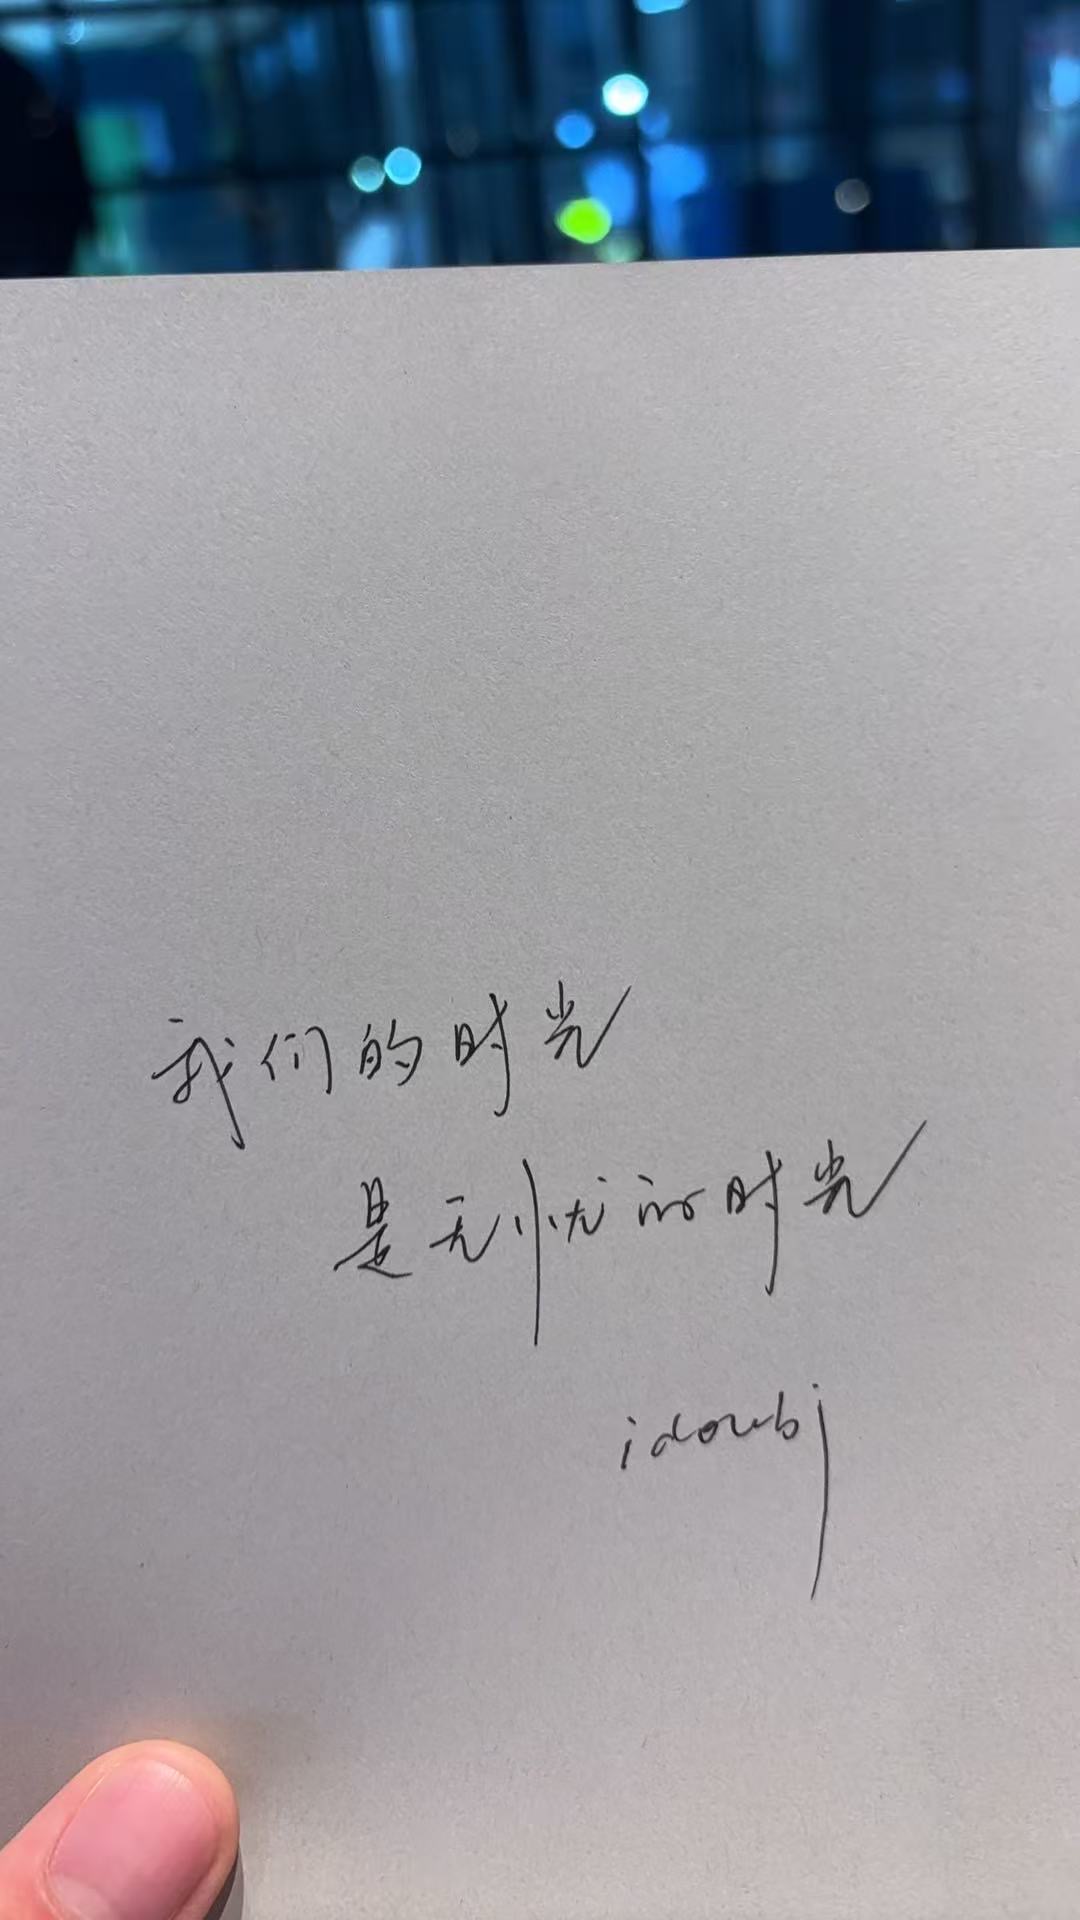 我们的时光
是无忧的时光
idoubj